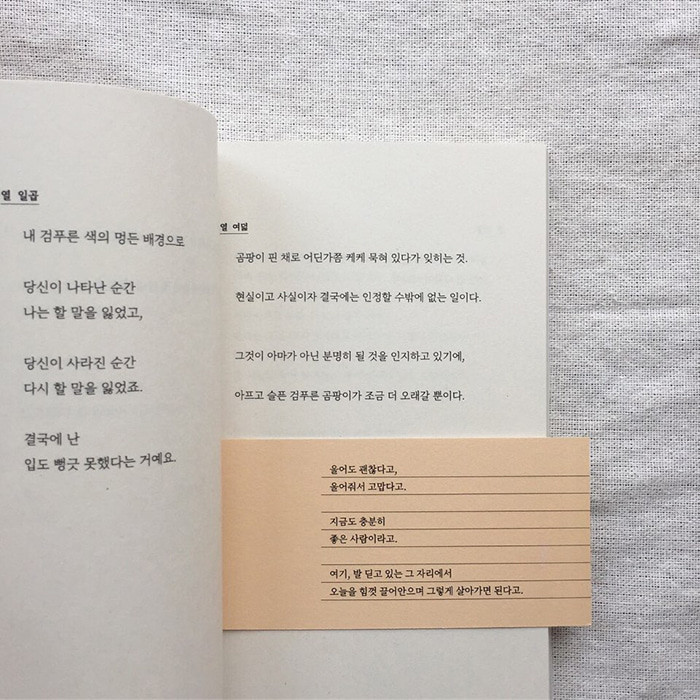 열 일곱
내 검푸른 색의 멍든 배경으로
당신이 나타난 순간
나는 할 말을 잃었고,
당신이 사라진 순간
다시 할 말을 잃었죠.
결국에 난
입도 뻥긋 못했다는 거예요.
열 여덟
곰팡이 핀 채로 어딘가쯤 케케 묵혀 있다가 잊히는 것.
현실이고 사실이자 결국에는 인정할 수밖에 없는 일이다.
그것이 아마가 아닌 분명히 될 것을 인지하고 있기에,
아프고 슬픈 검푸른 곰팡이가 조금 더 오래갈 뿐이다.
울어도 괜찮다고,
울어줘서 고맙다고.
지금도 충분히
좋은 사람이라고.
여기, 발 딛고 있는 그 자리에서
오늘을 힘껏 끌어안으며 그렇게 살아가면 된다고.